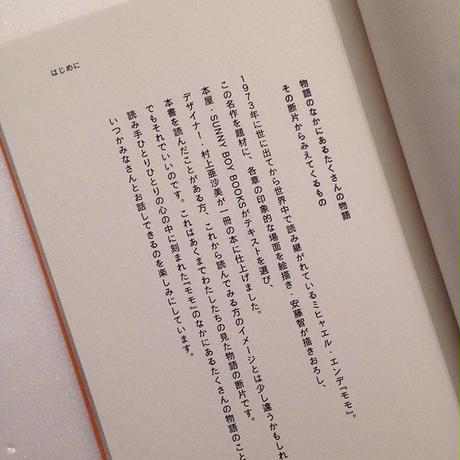 はじめに
物語のなかにあるたくさんの物語
その断片からみえてくるもの
1973年に世に出てから世界中で読み継がれているミヒャエル・エンデ『モモ』。
この名作を題材に、各章の印象的な場面を絵描き・安藤智が描きおろし、
本屋・SUNNY BOY BOOKSがテキストを選び、
デザイナー・村上亜沙美が一冊の本に仕上げました。
本書を読んだことがある方、これから読んでみる方のイメージとは少し違うかもしれ
でもそれでいいのです。これはあくまでわたしたちの見た物語の断片です。
読み手ひとりひとりの心の中に刻まれた『モモ』のなかにあるたくさんの物語のこと
いつかみなさんとお話しできるのを楽しみにしています。